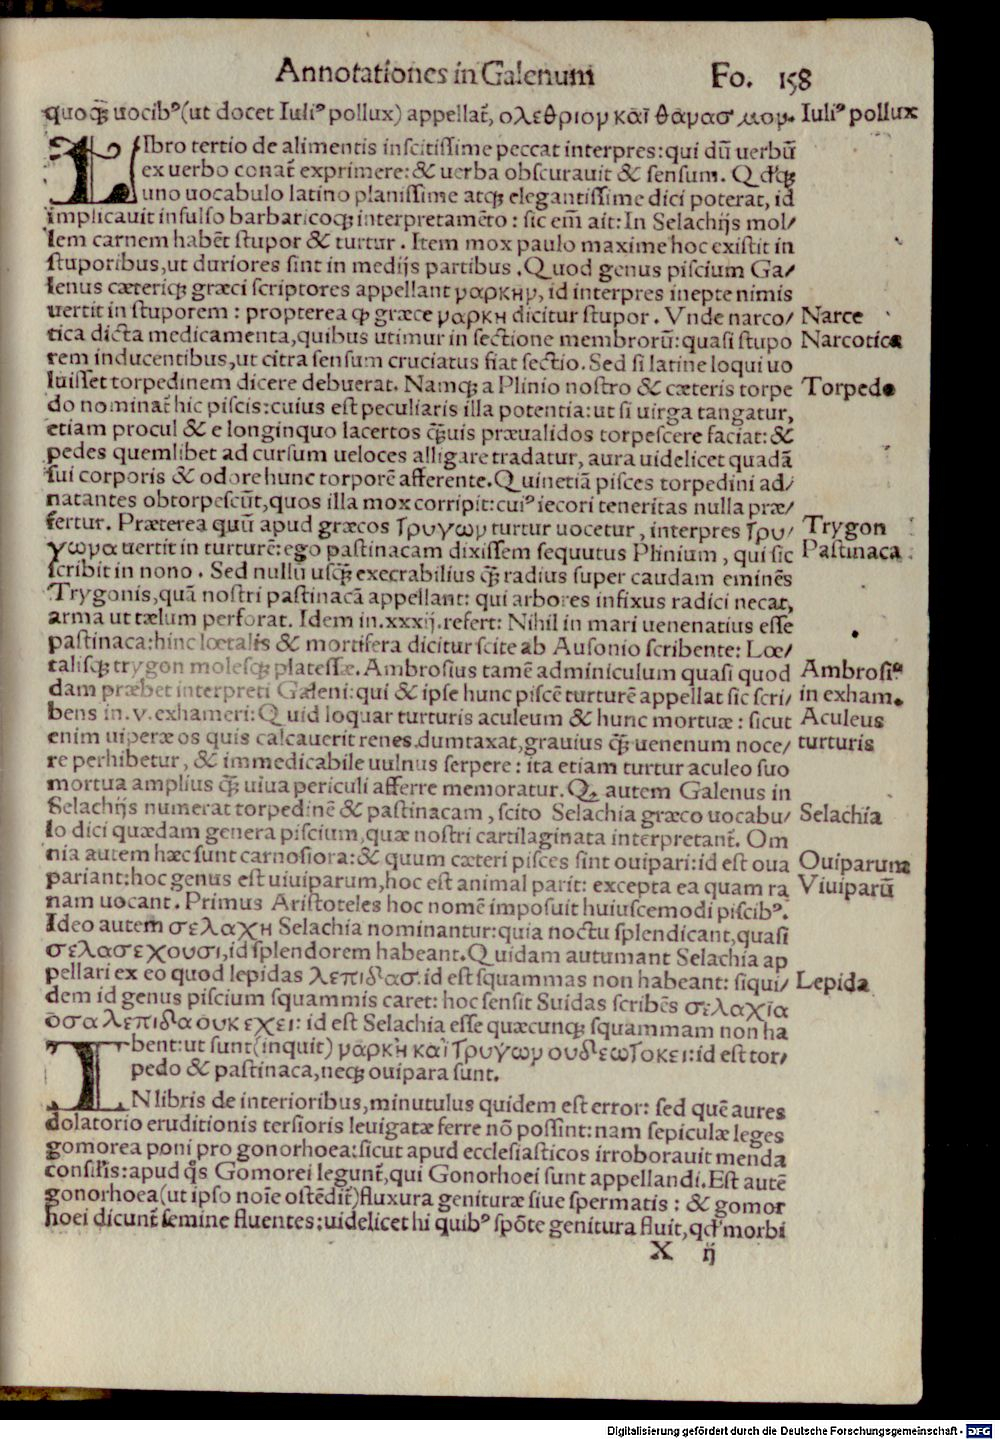 Annotationes in Galenum Fo. 158
quoq̃ uocib⁹(ut docet Iuli⁹ pollux) appellat̃, ολεθριον καῒ θανασ μον. Iuli⁹ pollux
LIbro tertio de alimentis inscitissime peccat interpres: qui dũ uerbũ
ex uerbo conat̃ exprimere: & uerba obscurauit & sensum. Qđq̃
uno uocabulo latino planissime atq̃ elegantissime dici poterat, id
implicauit insulso barbaricoq̃ interpretamẽto: sic em̃ ait: In Selachijs mol/
lem carnem habẽt stupor & turtur. Item mox paulo maxime hoc existit in
stuporibus, ut duriores sint in medijs partibus. Quod genus piscium Ga/
lenus cæteriq̃ græci scriptores appellant ναρκην, id interpres inepte nimis
uertit in stuporem: propterea ꝙ græce ναρκη dicitur stupor. Vnde narco/ Narce
tica dicta medicamenta, quibus utimur in sectione membrorũ: quasi stupo Narcotica
rem inducentibus, ut citra sensum cruciatus fiat sectio. Sed si latine loqui uo
luisset torpedinem dicere debuerat. Namq̃ a Plinio nostro & cæteris torpe Torpedo
do nominat̃ hic piscis: cuius est peculiaris illa potentia: ut si uirga tangatur,
etiam procul & e longinquo lacertos q̃uis præualidos torpescere faciat: &
pedes quemlibet ad cursum ueloces alligare tradatur, aura uidelicet quadã
sui corporis & odore hunc torporẽ afferente. Quinetiã pisces torpedini ad/
natantes obtorpescũt, quos illa mox corripit: cui⁹ iecori teneritas nulla præ/
fertur. Præterea quũ apud græcos τρυγων turtur uocetur, interpres τρυ/ Trygon
γωνα uertit in turturẽ: ego pastinacam dixissem sequutus Plinium, qui sic Pastinaca
scribit in nono. Sed nullũ usq̃ execrabilius q̃ radius super caudam eminẽs
Trygonis, quã nostri pastinacã appellant: qui arbores infixus radici necat,
arma ut tælum perforat. Idem in.xxxij.refert: Nihil in mari uenenatius esse
pastinaca: hinc lœtalis & mortifera dicitur scite ab Ausonio scribente: Lœ/
talisq̃ trygon molesq̃ platessæ. Ambrosius tamẽ adminiculum quasi quod Ambrosi⁹
dam præbet interpreti Galeni: qui & ipse hunc piscẽ turturẽ appellat sic scri/ in exham.
bens in.v.exhameri: Quid loquar turturis aculeum & hunc mortuæ: sicut Aculeus
enim uiperæ os quis calcauerit renes.dumtaxat, grauius q̃ uenenum noce/ turturis
re perhibetur, & immedicabile uulnus serpere: ita etiam turtur aculeo suo
mortua amplius q̃ uiua periculi afferre memoratur. Q, autem Galenus in
Selachijs numerat torpedinẽ & pastinacam, scito Selachia græco uocabu/ Selachia
lo dici quædam genera piscium, quæ nostri cartilaginata interpretant̃. Om
nia autem hæc sunt carnosiora: & quum cæteri pisces sint ouipari: id est oua Ouiparum
pariant: hoc genus est uiuiparum, hoc est animal parit: excepta ea quam ra Viuiparũ
nam uocant. Primus Aristoteles hoc nomẽ imposuit huiuscemodi piscib⁹.
Ideo autem σελαχη Selachia nominantur: quia noctu splendicant, quasi
σελασεχουσι, id splendorem habeant. Quidam autumant Selachia ap
pellari ex eo quod lepidas λεπιδασ.id est squammas non habeant: siqui/ Lepida
dem id genus piscium squammis caret: hoc sensit Suidas scribẽs σελαχῒα
ὁσα λεπιδα ουκ εχει: id est Selachia esse quæcunq̃ squammam non ha
bent: ut sunt (inquit) ναρκὴ καῒ τρυγων ουδε ωτοκει: id est tor/
pedo & pastinaca, neq̃ ouipara sunt.
IN libris de interioribus, minutulus quidem est error: sed quẽ aures
dolatorio eruditionis tersioris leuigatæ ferre nõ possint: nam sepiculæ leges
gomorea poni pro gonorhoea: sicut apud ecclesiasticos irroborauit menda
consilis: apud q̊s Gomorei legunt̃, qui Gonorhoei sunt appellandi. Est autẽ
gonorhoea (ut ipso noĩe ostẽdit̃) fluxura genituræ siue spermatis: & gomor
hoei dicunt̃ semine fluentes: uidelicet hi quib⁹ spõte genitura fluit, qđ morbi
X ij
Digitalisierung gefördert durch die Deutsche Forschungsgemeinschaft - DFG